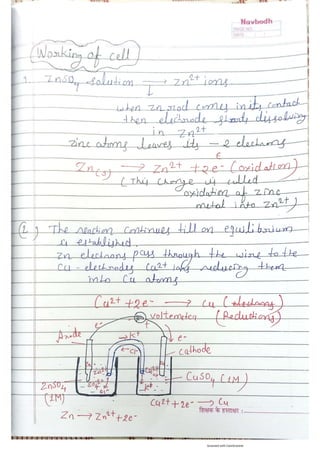 Navbodh
PAGE NO.
DATE
Working of cell
1. ZnSO4 solution → Zn2+ ions.
when Zn rod comes in its contact
then electrode starts dissolving
in Zn2+
zinc atoms leaves its – 2 electrons
Zn(s) → Zn2+ + 2e- (oxidation)
(This change is called
oxidation of zinc
metal into Zn2+)
(2) The reaction continues till on equilibrium
is established.
Zn electrons pass through the wire to the
Cu - electrodes Cu2+ ions reducing them
into Cu atoms
Cu2+ + 2e- → Cu
voltmeter (Reductions)
Anode e- K+ e-
e- Cl- Cathode
ZnSO4 CuSO4 (1M)
(1M)
Cu2+ + 2e- → Cu
Zn → Zn2+ + 2e-
शिक्षक के हस्ताक्षर
Scanned with CamScanner